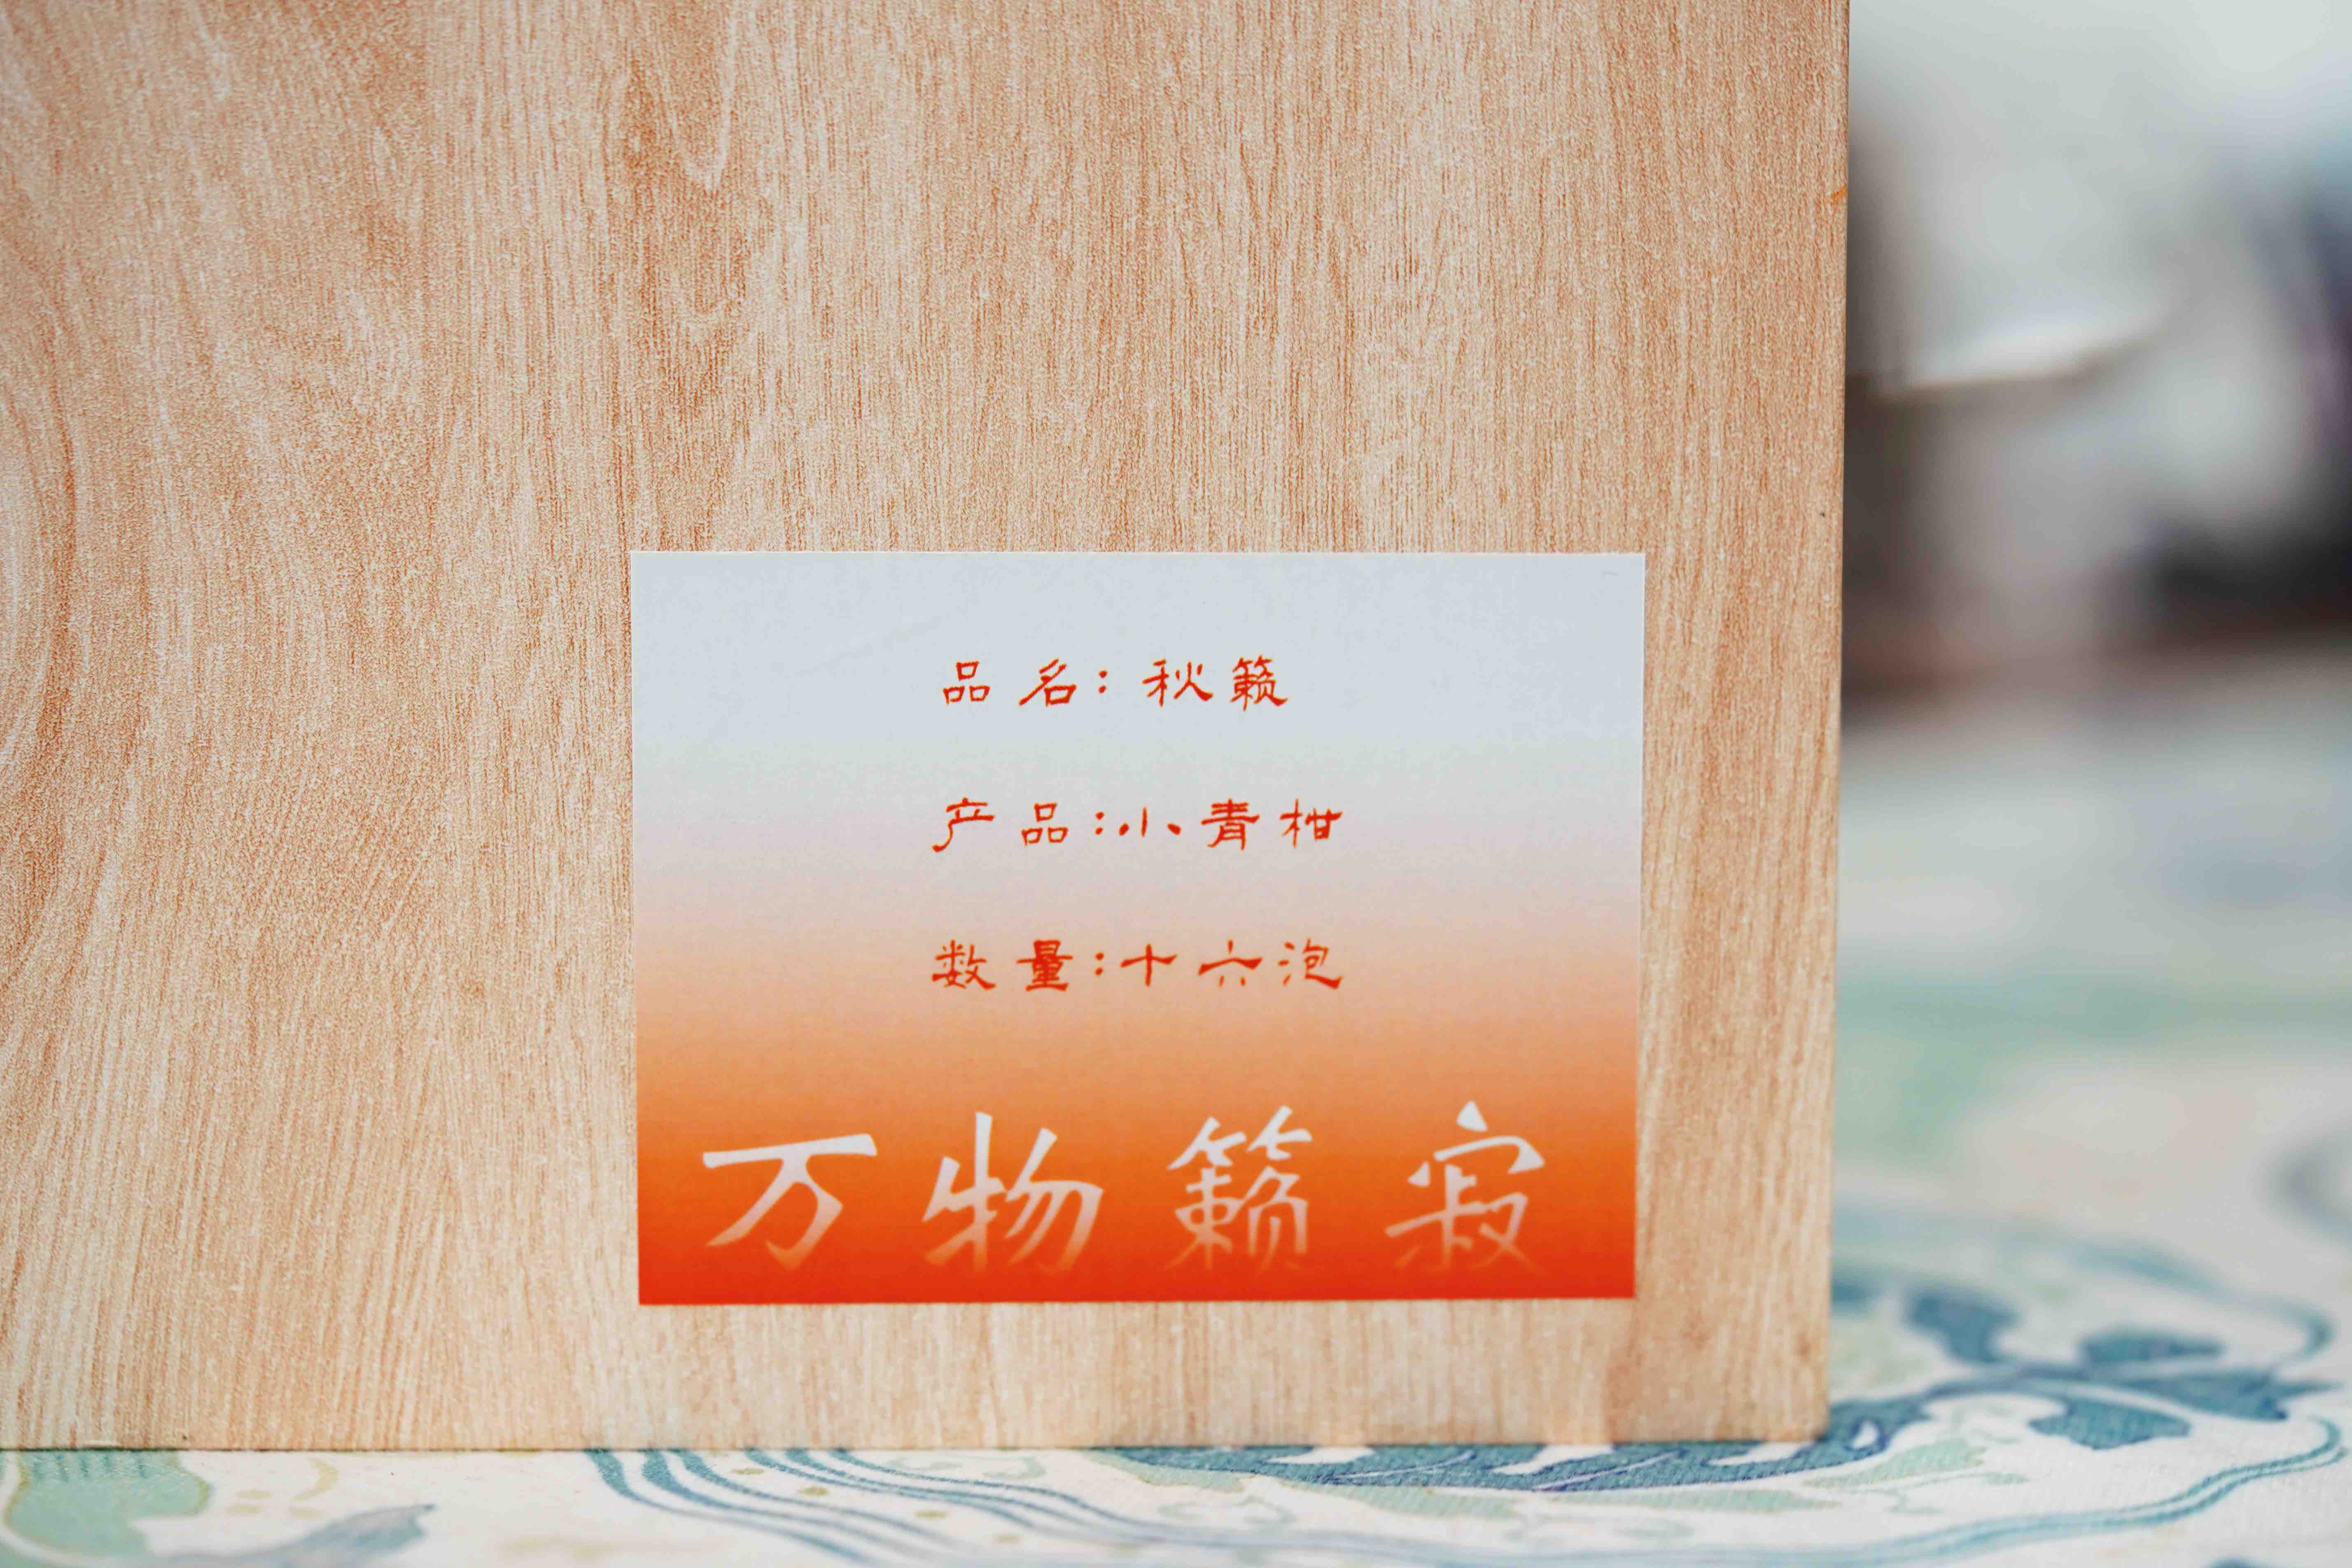 品名：秋籁
产品：小青柑
数量：十六泡
万物籁寂